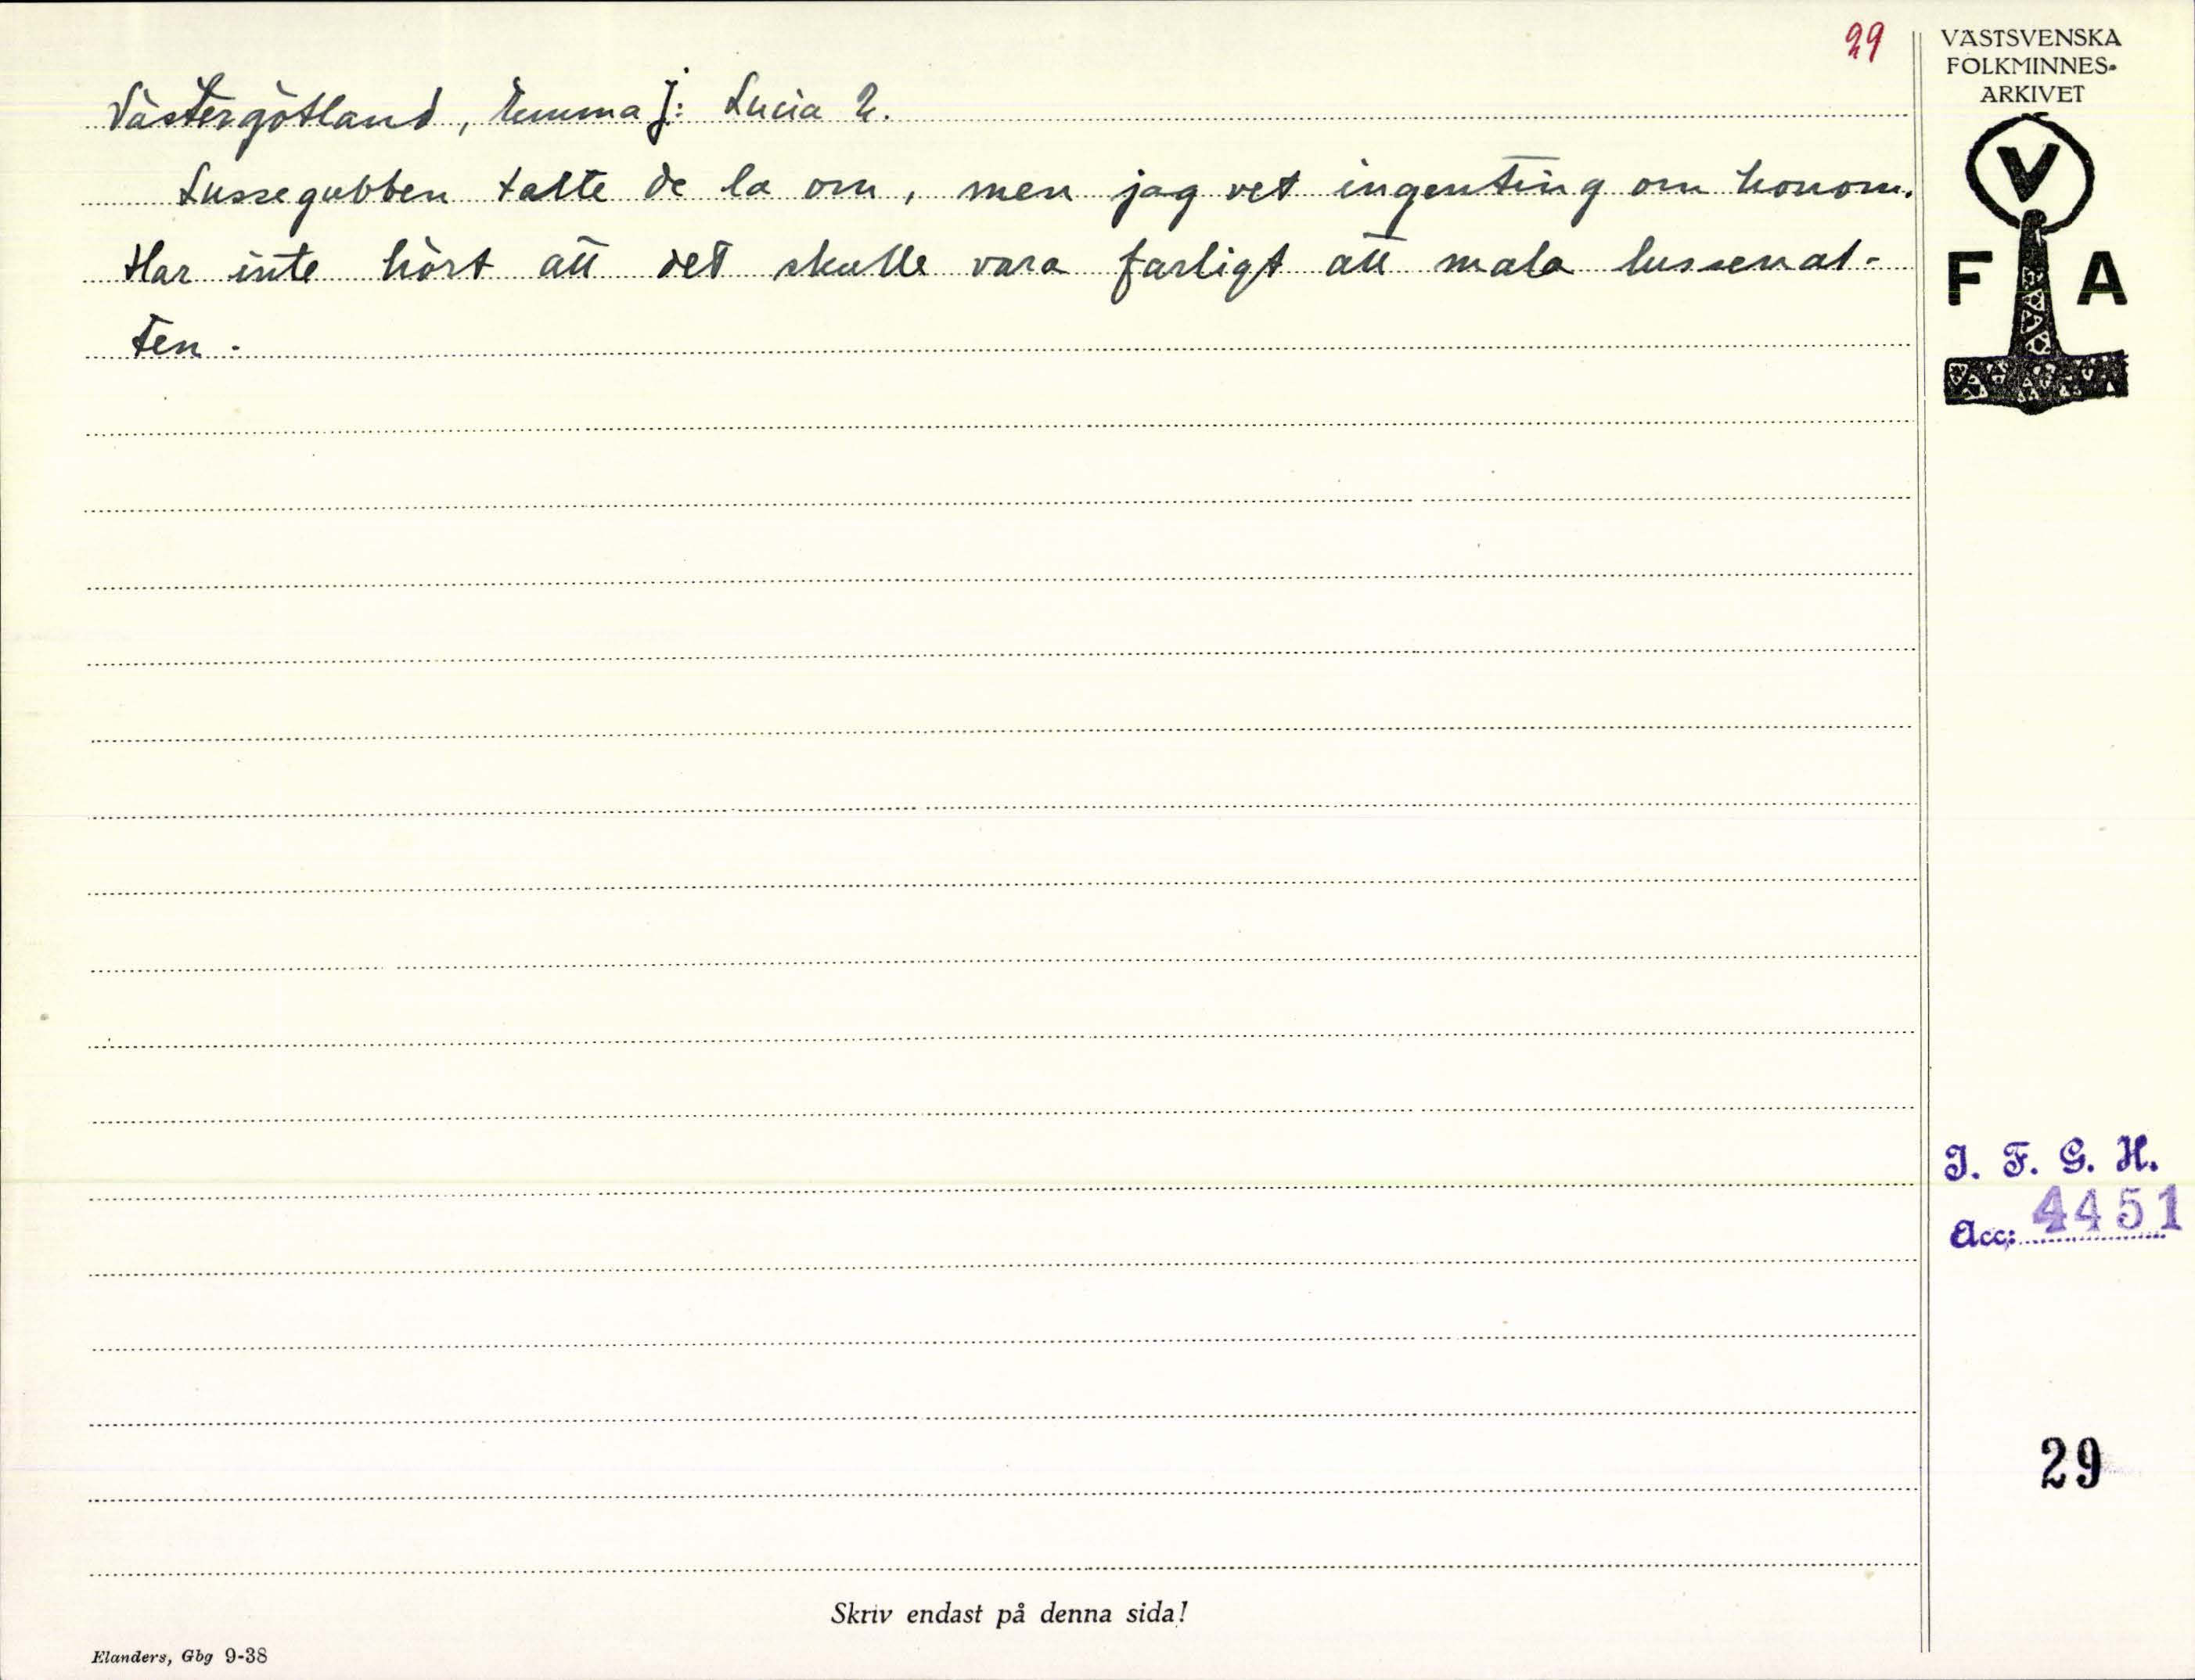 29
Västergötland, Emma J: Lucia 2.
Lussegubben talte de la om, men jag vet ingenting om honom.
Har inte hört att det skulle vara farligt att mala lussenat-
ten.
VÄSTSVENSKA
FOLKMINNES-
ARKIVET
V
F A
I. F. G. H.
Acc: 4451
29
Skriv endast på denna sida!
Elanders, Gbg 9-38